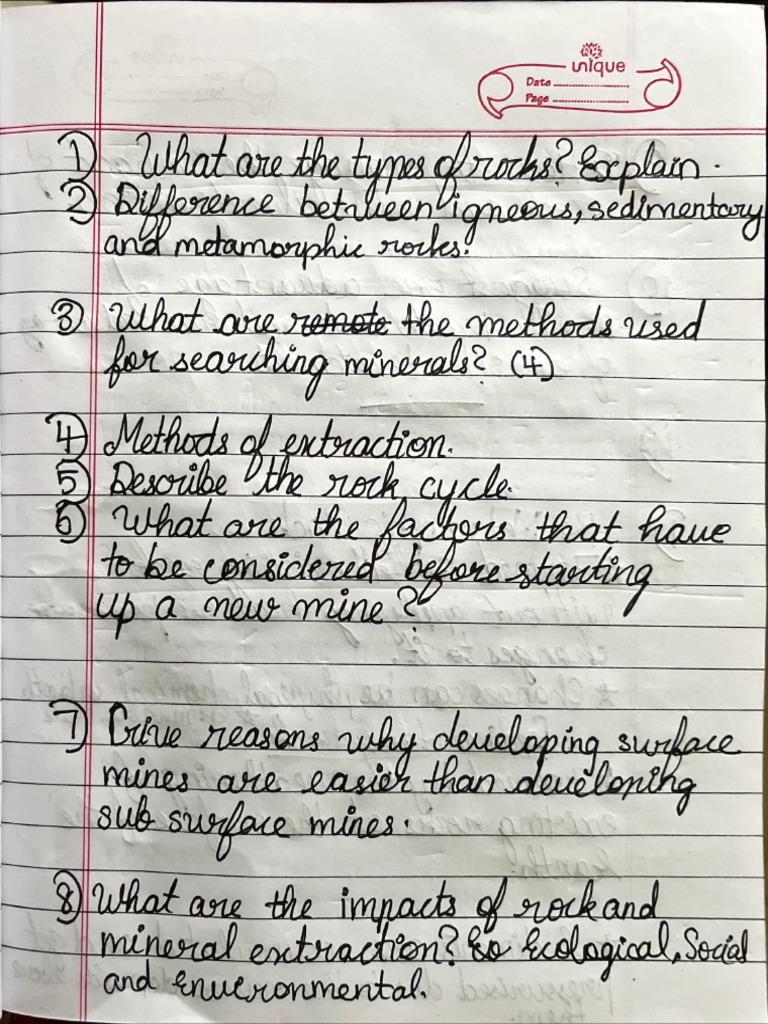 unique
Date
Page
① What are the types of rocks? Explain.
② Difference between igneous, sedimentary
and metamorphic rocks.
③ What are remote the methods used
for searching minerals? (4)
④ Methods of extraction.
⑤ Describe the rock cycle.
⑥ What are the factors that have
to be considered before starting
up a new mine?
⑦ Give reasons why developing surface
mines are easier than developing
sub surface mines.
⑧ What are the impacts of rock and
mineral extraction? Eo Ecological, Social
and Enveronmental.